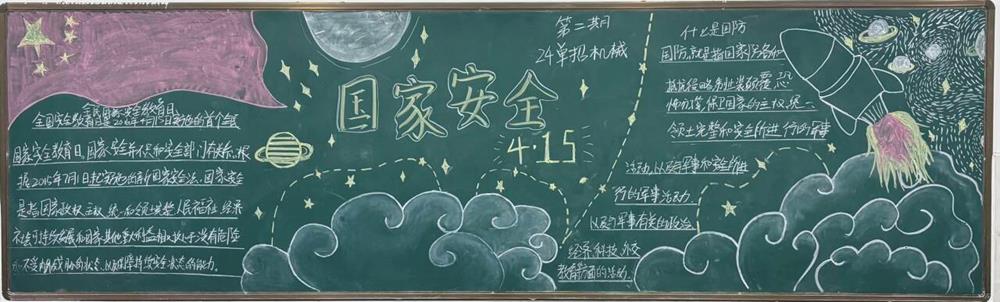 第二期
24单招机械
国家安全
4·15
全民国家安全教育日
全国安全教育日是2016年4月15日
国家安全教育日。国家安全年不只和安全部门有关系。根
据2015年7月1日起实施的新国家安全法。国家安全
是指国家政权、主权、统一和领土完整、人民福祉、经济
社会可持续发展和国家其他重大利益相对处于没有危险
和不受内外威胁的状态、以及保障持续安全状态的能力。
什么是国防
国防,就是指国家防备和
抵抗侵略,制止武装颠覆,恐
怖分裂,保卫国家的主权,统一
领土完整和安全所进行的军事
活动,以及军事和安全所进
行的军事活动
以及与军事有关的政治
经济,科技,外交
教育方面的活动。